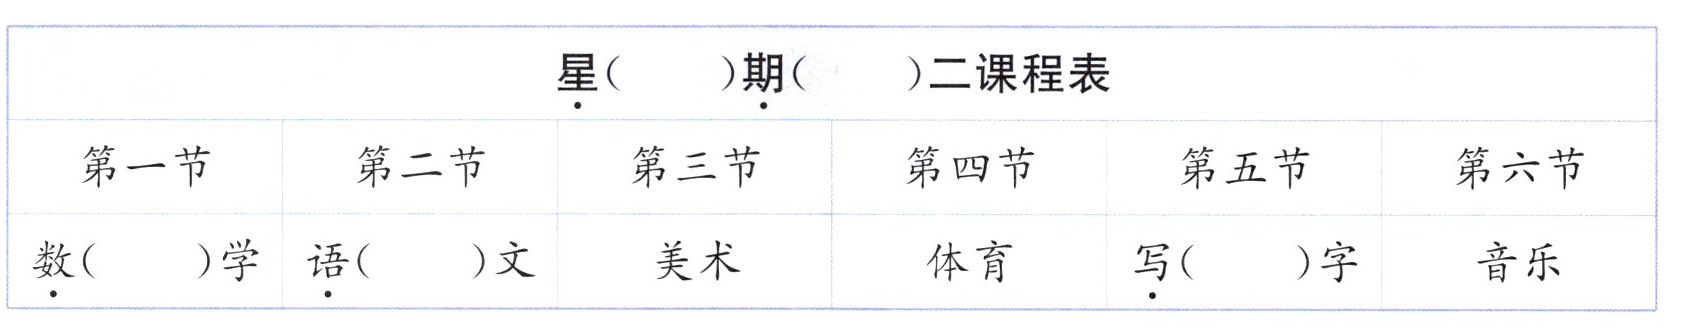 星（　　）期（　　）二课程表
第一节 第二节 第三节 第四节 第五节 第六节
数（　　）学 语（　　）文 美术 体育 写（　　）字 音乐